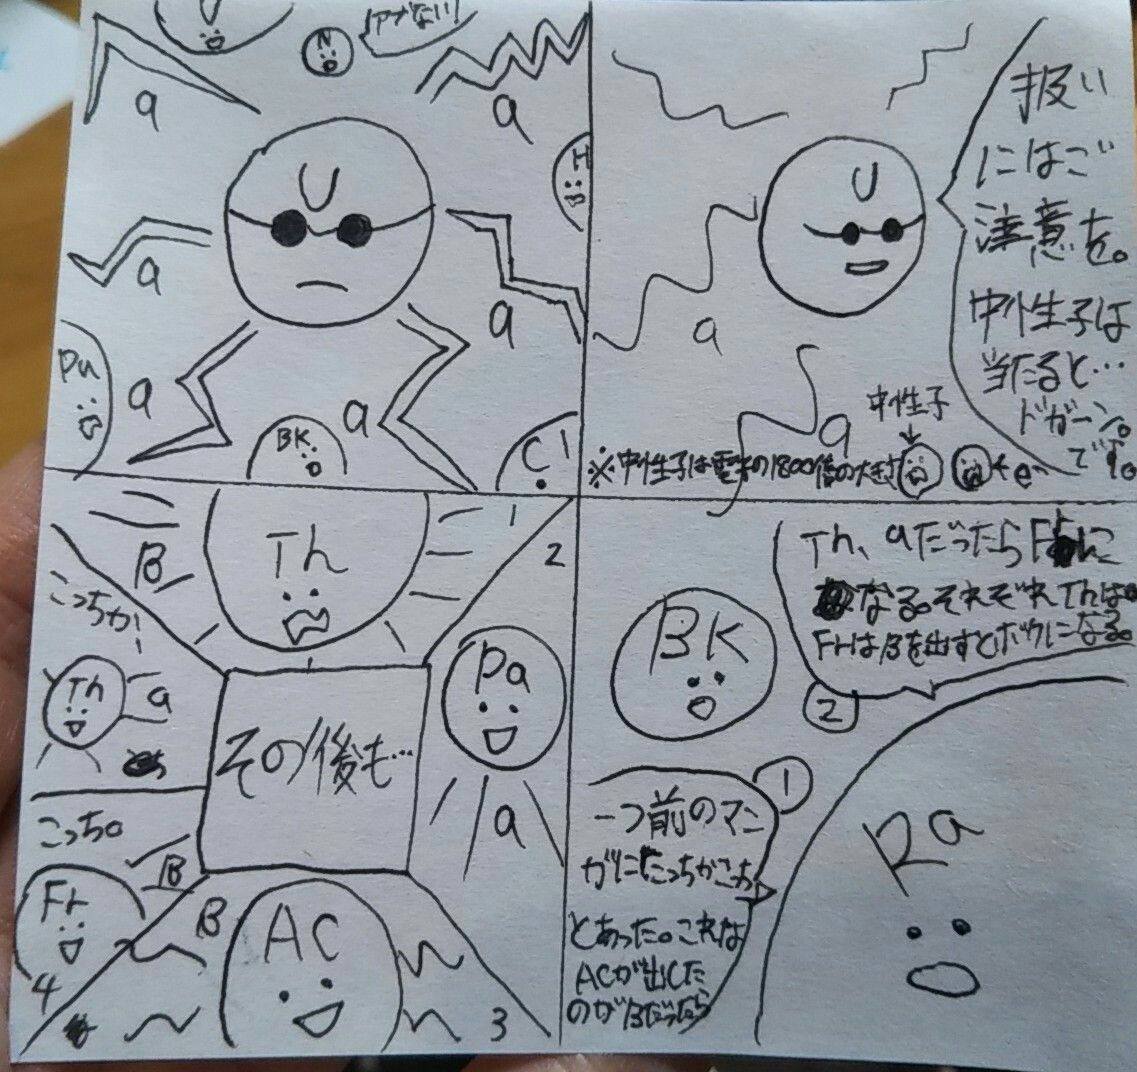 U
N
アブない!
a
a
H
U
a
a
a
a
Pu
BK
Cl
U
扱い
にはご
注意を。
中性子は
当たると…
ドガーン。
です。
a
a
中性子
↓
※中性子は電子の1800倍の大きさ
←e-
Th
1
B
こっちか
Th
a
2
Pa
a
その後も…
こっち。
Fr
B
4
B
AC
3
BK
①
一つ前のマン
ガにこっちかこっち
とあった。これは
ACが出した
のがBだったら
②
Th、aだったらFrに
なる。それぞれThはa
FrはBを出すとボクになる。
Ra